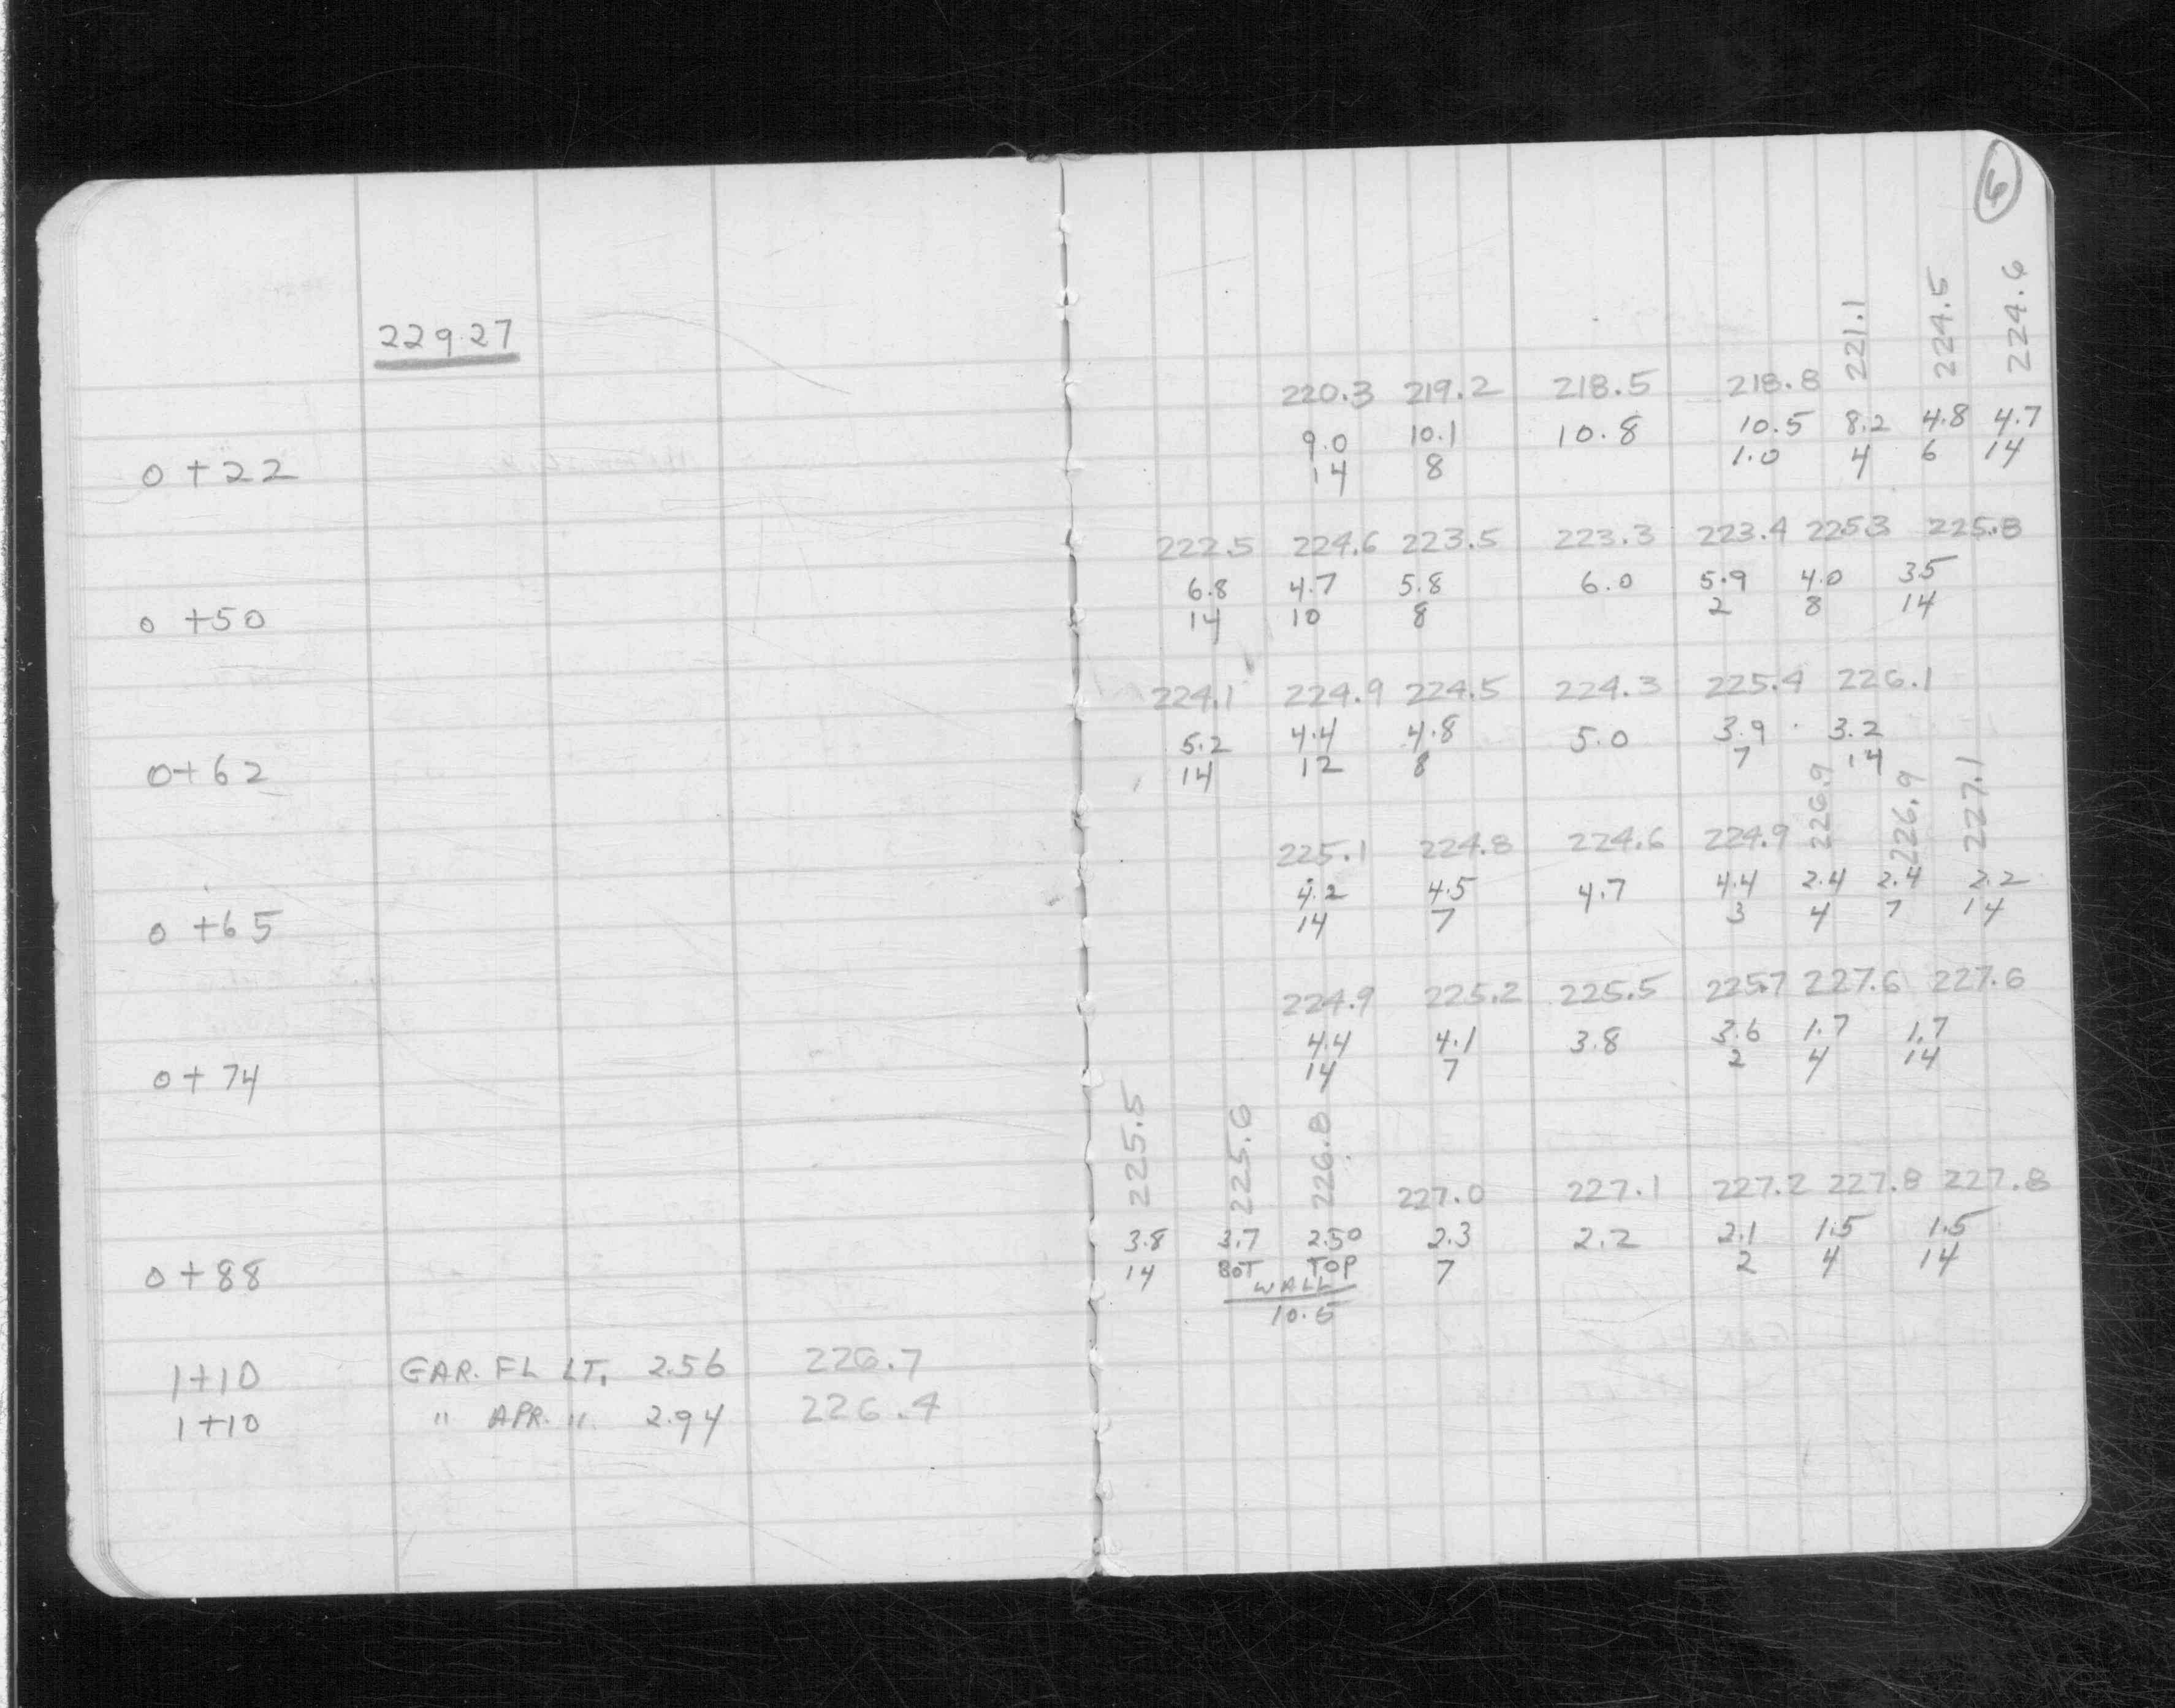 6
229.27
221.1 224.5 224.6
220.3 219.2 218.5 218.8
9.0 10.1 10.8 10.5 8.2 4.8 4.7
0+22 14 8 1.0 4 6 14
222.5 224.6 223.5 223.3 223.4 225.3 225.8
6.8 4.7 5.8 6.0 5.9 4.0 3.5
0+50 14 10 8 2 8 14
224.1 224.9 224.5 224.3 225.4 226.1
5.2 4.4 4.8 5.0 3.9 3.2
0+62 14 12 8 7 14
226.9 226.9 227.1
225.1 224.8 224.6 224.9
4.2 4.5 4.7 4.4 2.4 2.4 2.2
0+65 14 7 3 4 7 14
224.9 225.2 225.5 225.7 227.6 227.6
4.4 4.1 3.8 3.6 1.7 1.7
0+74 14 7 2 4 14
225.5 225.6 226.8
227.0 227.1 227.2 227.8 227.8
3.8 3.7 2.50 2.3 2.2 2.1 1.5 1.5
0+88 14 BOT TOP 7 2 4 14
WALL
10.5
1+10 GAR. FL LT. 2.56 226.7
1+10 " APR. " 2.94 226.4